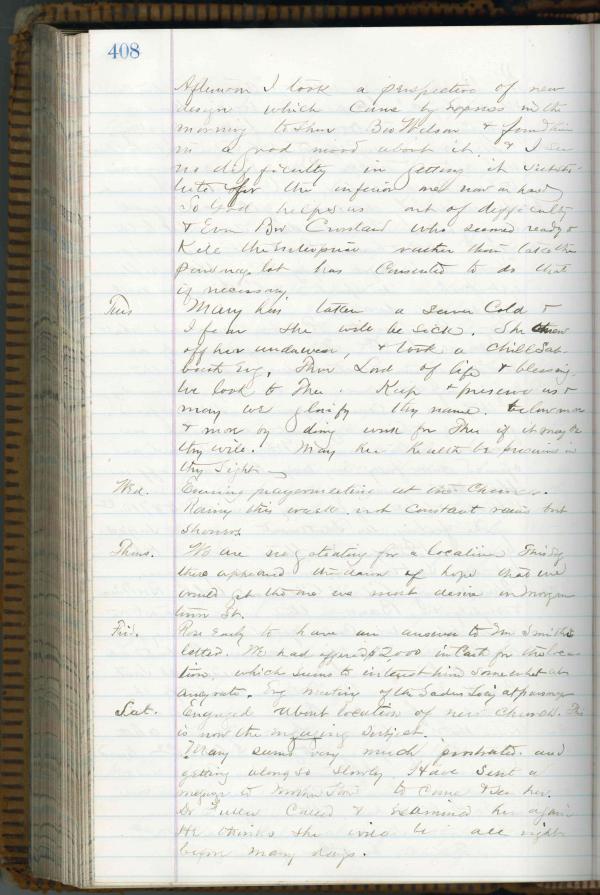 408
Afternoon I took a perspective of new
design which came by express in the
morning to show Bro Wilson & found him
in a good mood about it & I see
no difficulty in getting it substi-
tuted for the inferior one now on hand
So God helps us out of difficulty
& Even Bro Crosland who seemed ready to
Kill the Enterprise rather than take the
lot has Consented to do that
if necessary
Tues Mary has taken a severe Cold &
I fear she will be sick. She threw
off her underwear, & took a chill Sab-
bath Evg. Thou Lord of life & blessing
We look to Thee. Keep & preserve us &
may we glorify thy name. to love more
& more by doing work for Thee if it may be
thy will. May her health be precious in
thy Sight
Wed. Evening prayermeeting at the Church.
Rainy this week. not Constant rain but
showers.
Thurs. We are negotiating for a location
there appeared the dawn of hope that we
would get the one we most desire on
St.
Fri. Rose Early to have an answer to Mr Smith's
letter. We had offered $2,000 in Cash for the loca-
tion, which seems to interest him somewhat at
any rate. Evg meeting of the Ladies Socy at parsonage
Sat. Engaged about location of new Church. This
is now the engaging subject.
Mary seems very much prostrated and
getting along so slowly Have sent a
message to Mother to come & see her.
Dr Called & Examined her again
He thinks she will be all right
before many days.